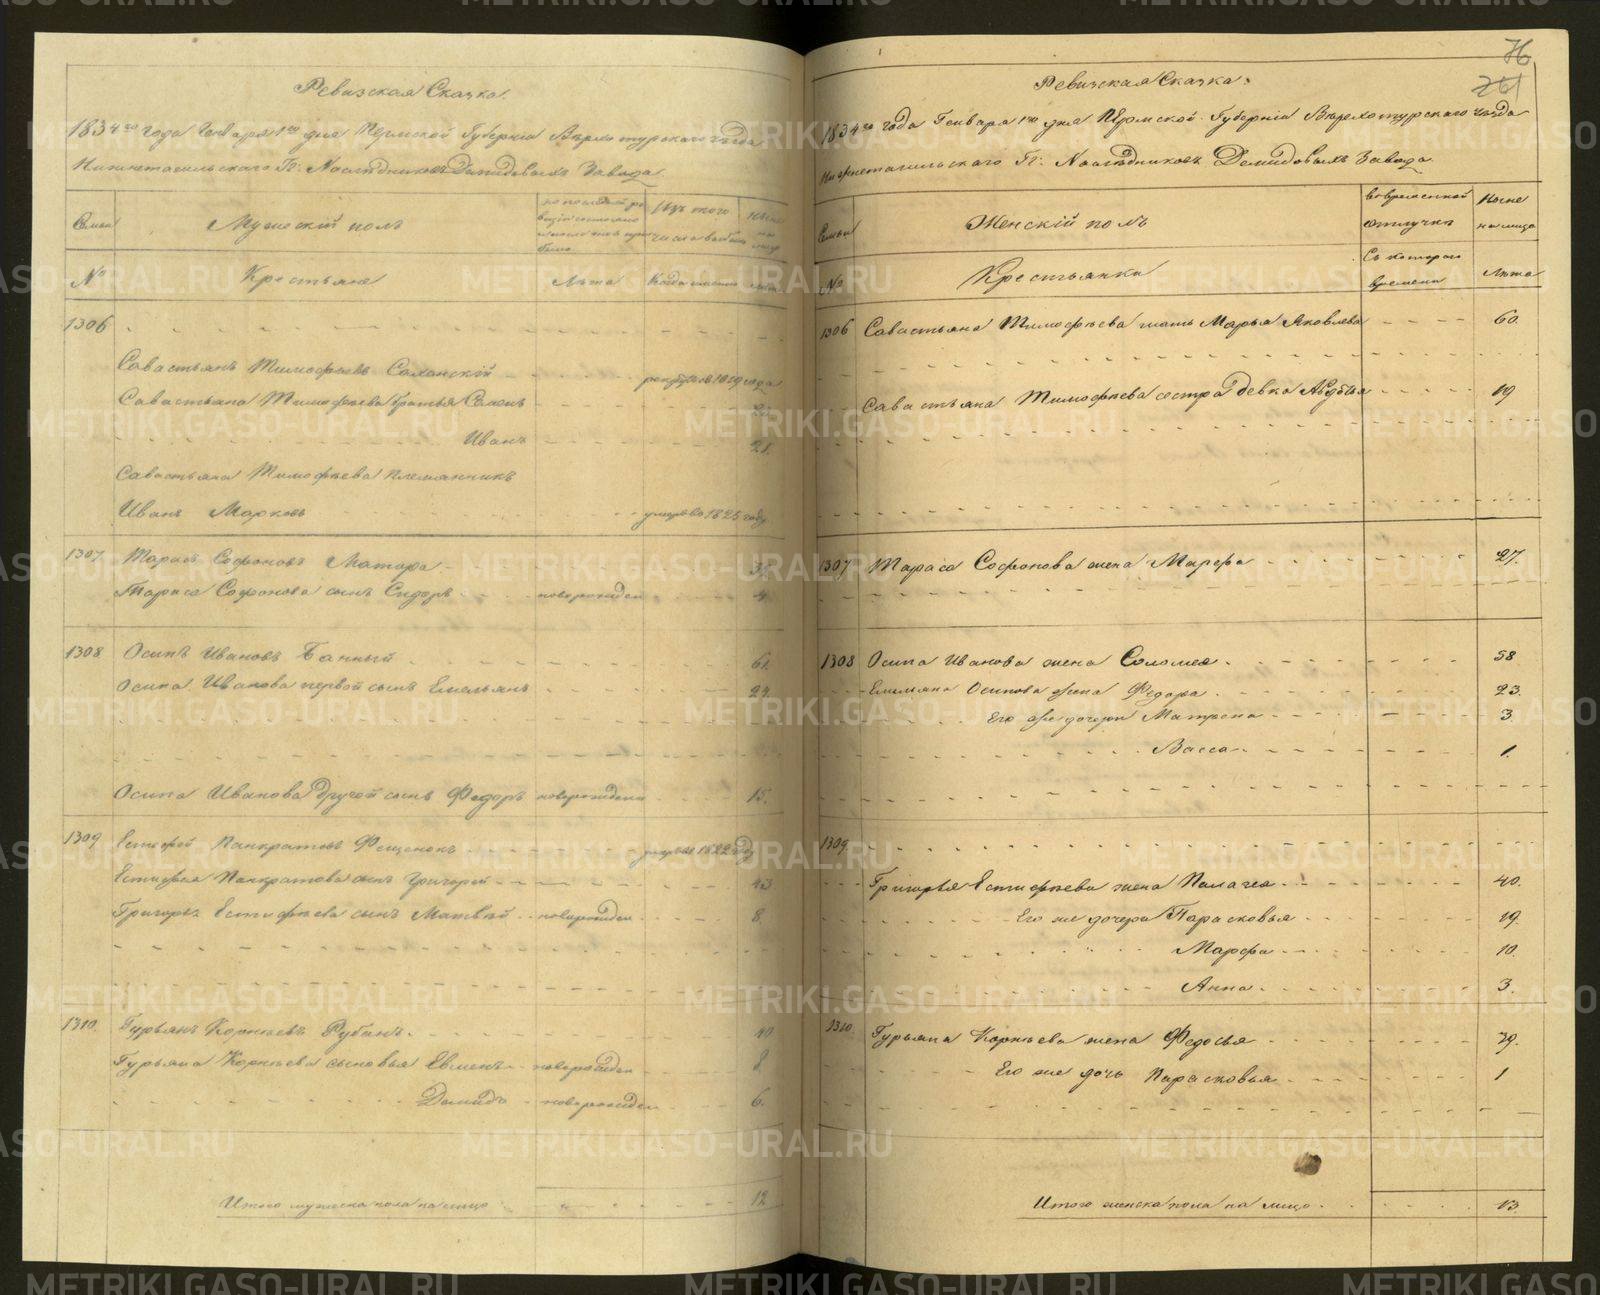 Ревизская Сказка.
1834го года Генваря 1го дня Пермской Губернiи Верхотурского уезда
Нижнетагильскаго Гг: Наследниковъ Демидовыхъ Завода
Семьи
Мужескiй полъ
Изъ того числа выбыло
ныне на лицо
№
Крестьяне
Лета
Когда именно
Лета
1306
Савастьянъ Тимофеевъ
рекрутъ 1819 года
Савастьяна Тимофеева братья Семенъ
Иванъ
21.
Савастьяна Тимофеева племянникъ
Иванъ Марковъ
умеръ въ 1825 году
1307
Тарасъ Софроновъ Матора
Тараса Софронова сынъ Сидоръ
новорожден
4
1308
Осипъ Ивановъ Банный
61.
Осипа Иванова первой сынъ Емельянъ
24.
Осипа Иванова другой сынъ Федоръ
новорожденъ
15.
1309
Естифей Панкратовъ Фещенокъ
умеръ въ 1822 году
Естифея Панкратова сынъ Григорей
43
Григорья Естифеева сынъ Матвей
новорожден
8.
1310.
Гурьянъ Корнеевъ Рубанъ
40
Гурьяна Корнеева сыновья Евменъ
новорожден
8
Демидъ
новорожден
6.
Итого мужеска пола на лицо
12
76
261
Ревизская Сказка:
1834го года Генваря 1го дня Пермской Губернiи Верхотурскаго уезда
Нижнетагильскаго Гг: Наследниковъ Демидовыхъ Завода
Семьи
Женскiй полъ
во временной отлучке
Ныне на лицо
№
Крестьянки
Съ котораго времени
Лета
1306
Савастьяна Тимофеева мать Марья Яковлева
60.
Савастьяна Тимофеева сестра девка Авдотья
19
1307
Тараса Софронова жена Марфа
27.
1308
Осипа Иванова жена Соломея
58
Емельяна Осипова жена Федора
23.
Его же дочери Матрена
3
Васса
1.
1309.
Григорья Естифеева жена Палагея
40.
Его же дочери Парасковья
19.
Марфа
10.
Анна
3.
1310.
Гурьяна Корнеева жена Федосья
39.
Его же дочь Парасковья
1
Итого женска пола на лицо
13.
METRIKI.GASO-URAL.RU